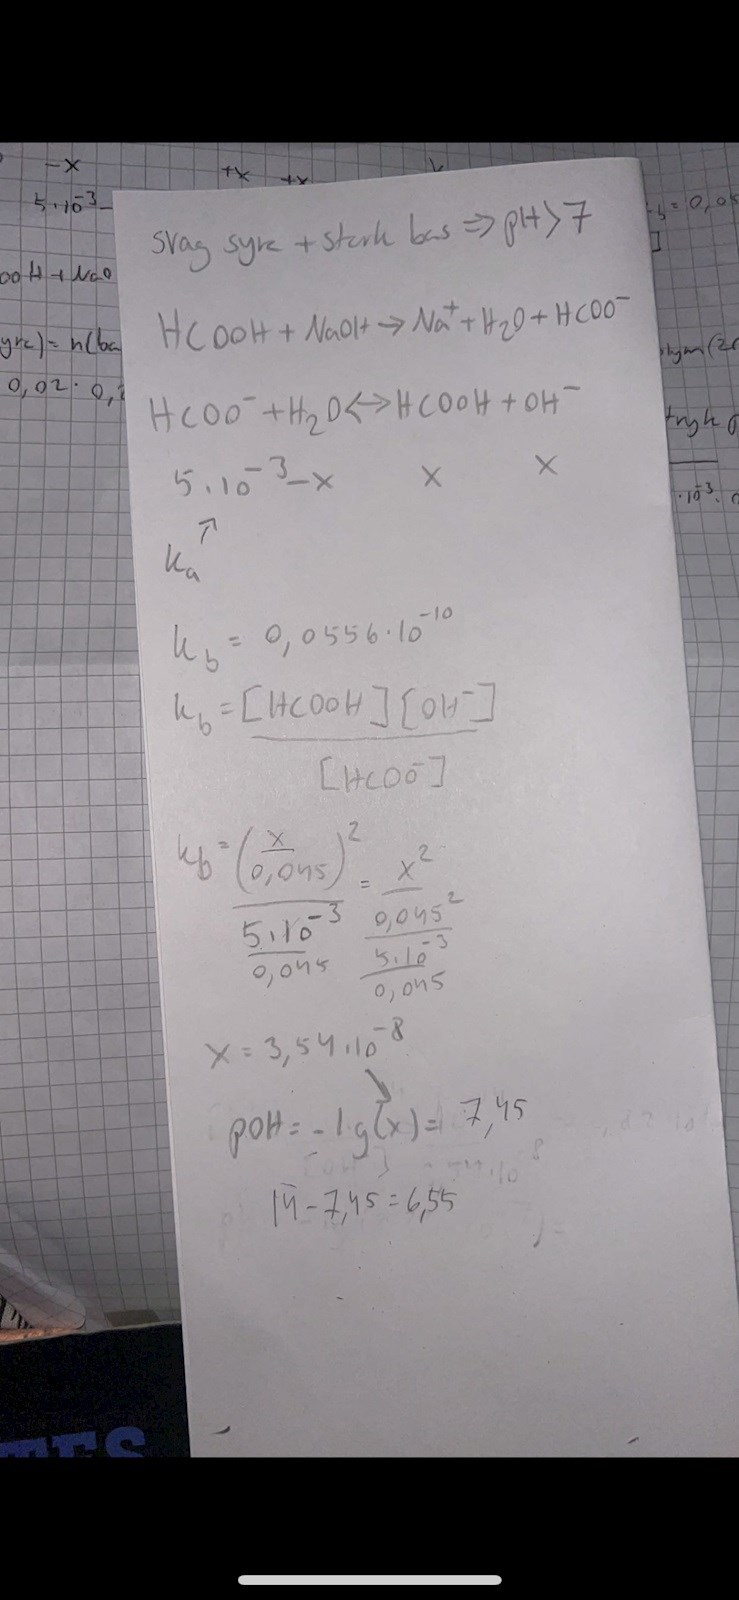 -x
+x +x
5·10⁻³-
b = 0,05
]
ooH + Nao
yra) = n(ba
0,02 · 0,
svag syra + stark bas ⇒ pH > 7
HCOOH + NaOH → Na⁺ + H₂O + HCOO⁻
HCOO⁻ + H₂O ↔ HCOOH + OH⁻
5·10⁻³-x x x
↗
ka
kb = 0,0556·10⁻¹⁰
kb = [HCOOH][OH⁻]
[HCOO⁻]
kb = (x/0,045)² / (5·10⁻³/0,045) = (x²/0,045²) / (5·10⁻³/0,045)
x = 3,54·10⁻⁸
pOH = -lg(x) = 7,45
14 - 7,45 = 6,55
·10⁻³·
TES